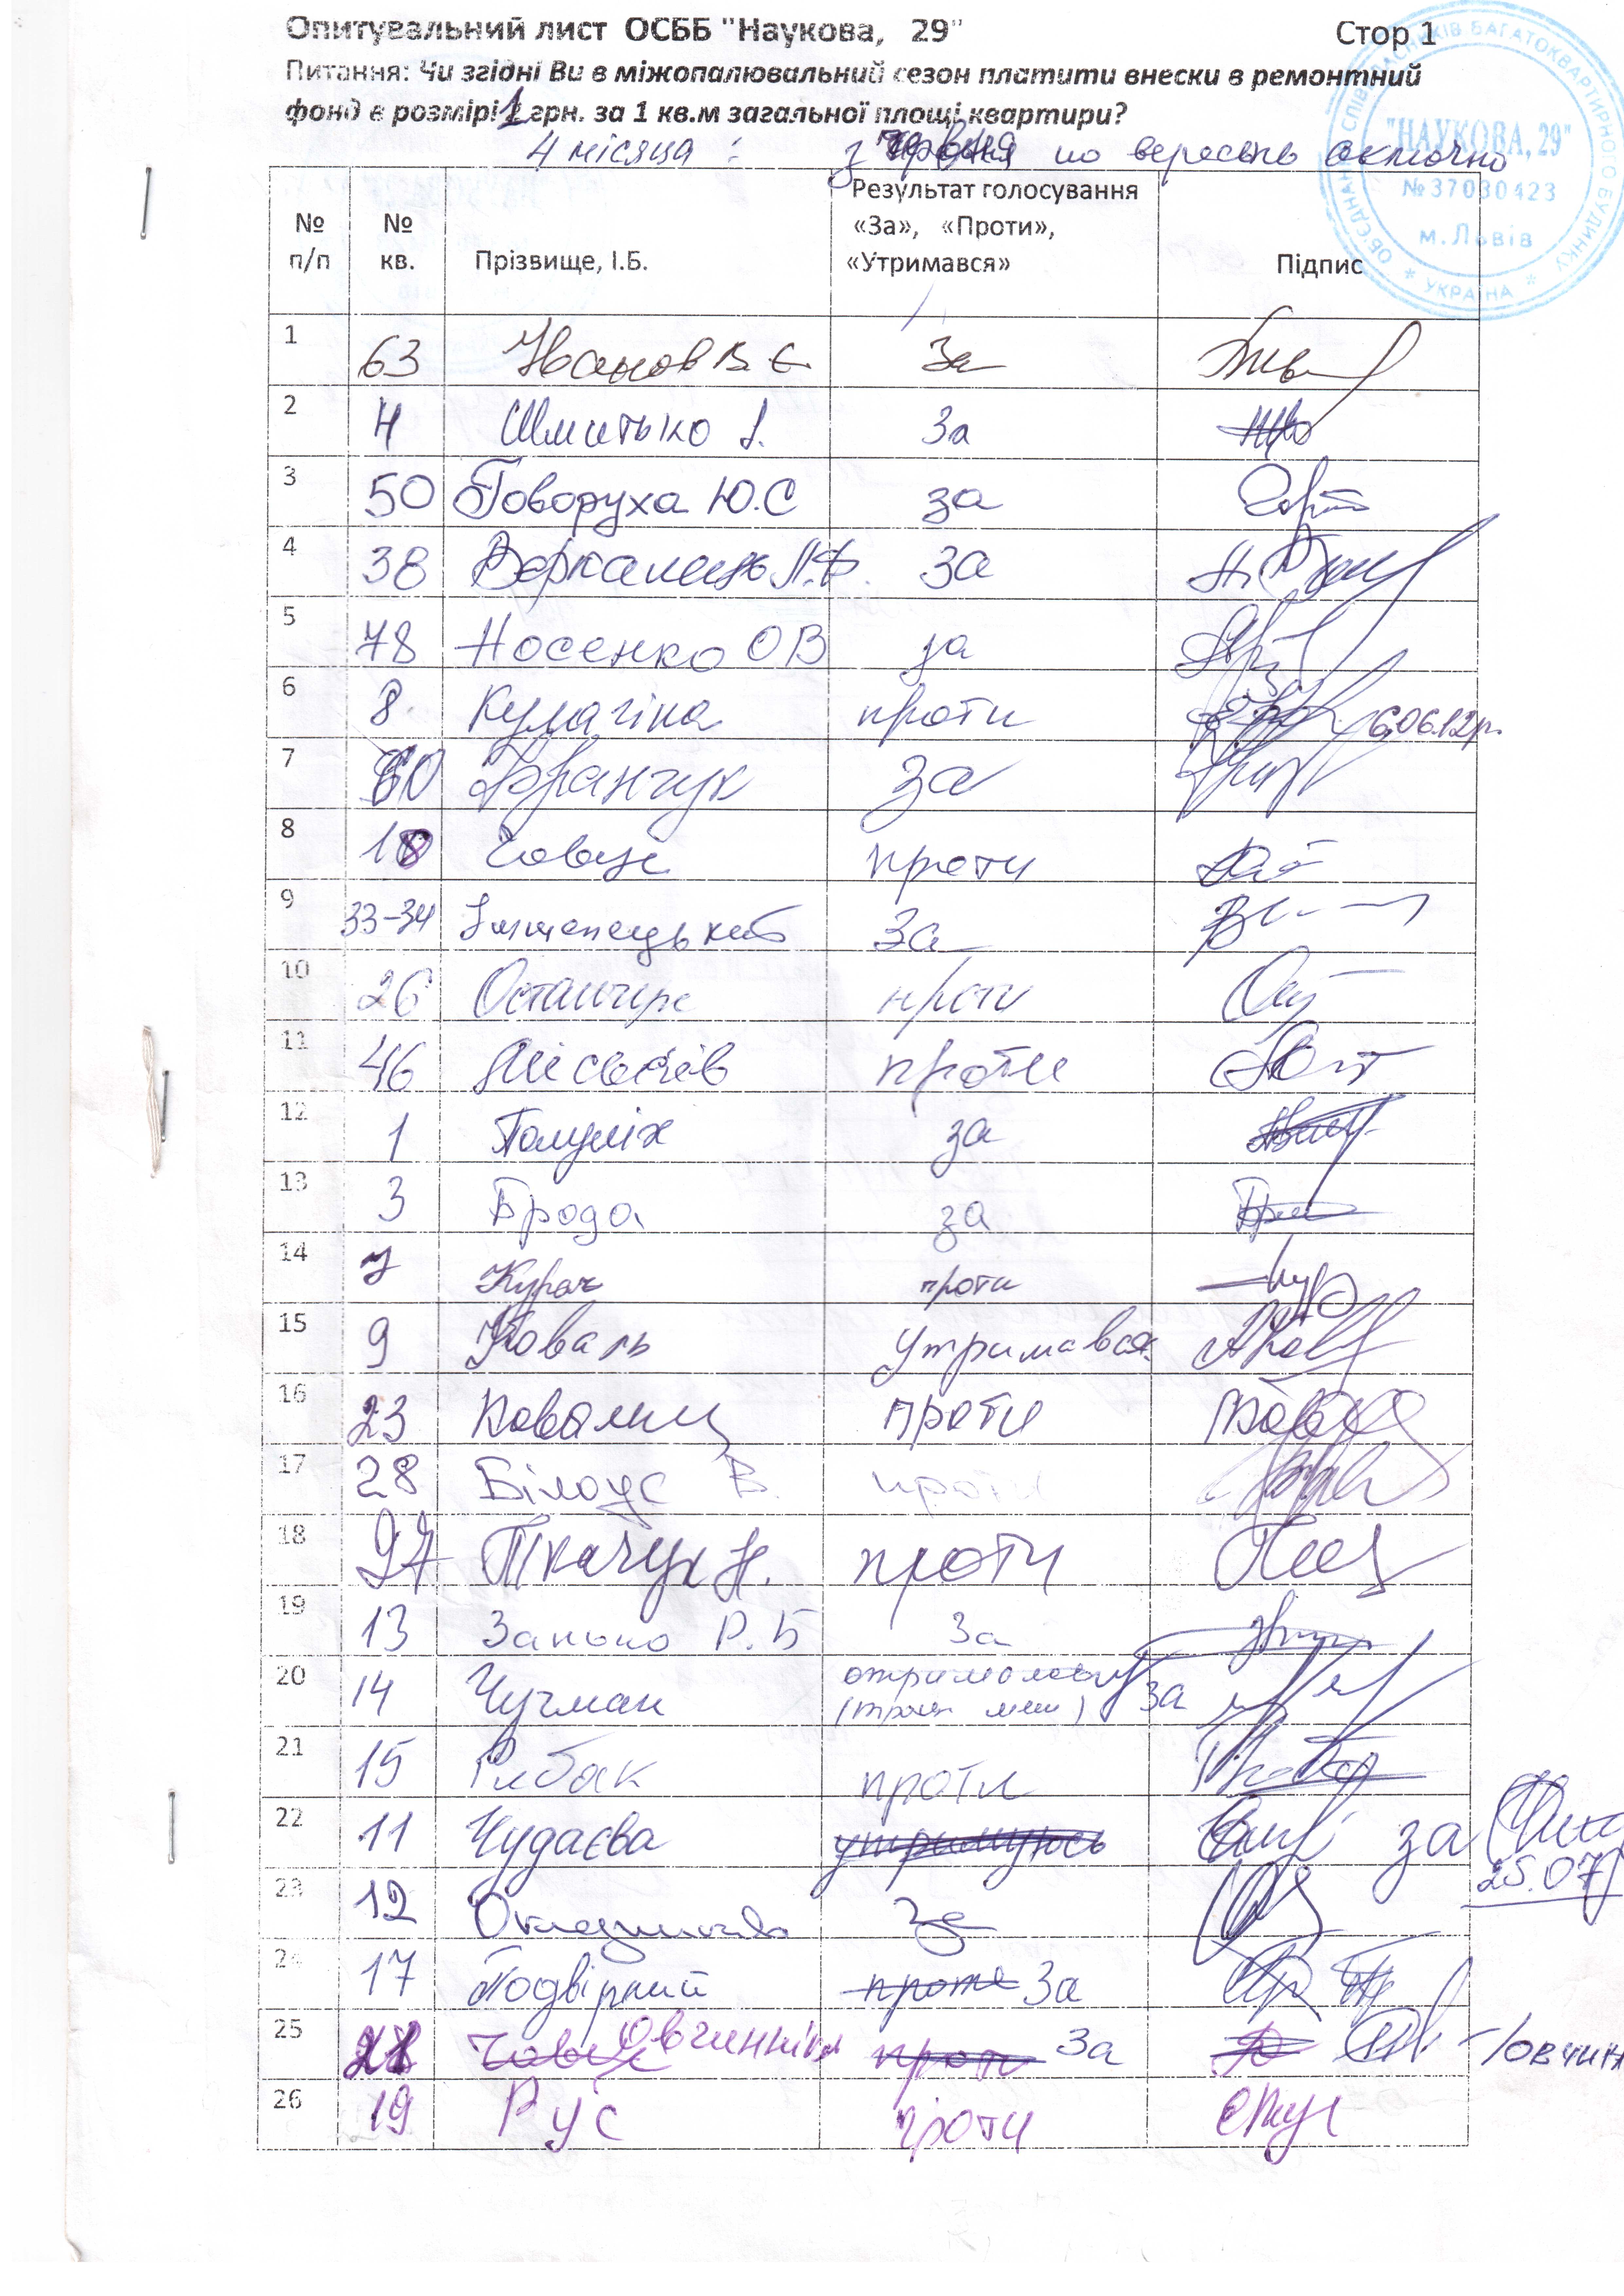 Опитувальний лист ОСББ "Наукова, 29"
Стор 1
Питання: Чи згідні Ви в міжопалювальний сезон платити внески в ремонтний
фонд в розмірі 1 грн. за 1 кв.м загальної площі квартири?
4 місяця : з червня по вересень включно
ОБ'ЄДНАННЯ СПІВВЛАСНИКІВ БАГАТОКВАРТИРНОГО БУДИНКУ * УКРАЇНА *
"НАУКОВА, 29"
№37030423
м.Львів
№ п/п № кв. Прізвище, І.Б. Результат голосування «За», «Проти», «Утримався» Підпис
1 63 Иванов В Є За
2 4 Шмитько І. За
3 50 Говоруха Ю.С за
4 38 Л.Ф. За
5 78 Носенко О В за
6 8 Кулагіна проти 6.06.12р.
7 60 Франчук За
8 18 проти
9 33-34 За
10 26 Останчук проти
11 46 проти
12 1 за
13 3 Брода за
14 7 Курач проти
15 9 Коваль Утримався
16 23 проти
17 28 Білоус В. проти
18 27 Ткачук Н. проти
19 13 Занько Р.Б За
20 14 Чучман за
21 15 Рибак проти
22 11 Чудаєва утримуюсь за 25.07
23 12 За
24 17 Подвірний проти За
25 21 Овчинніков проти За Овчин
26 19 Рус проти